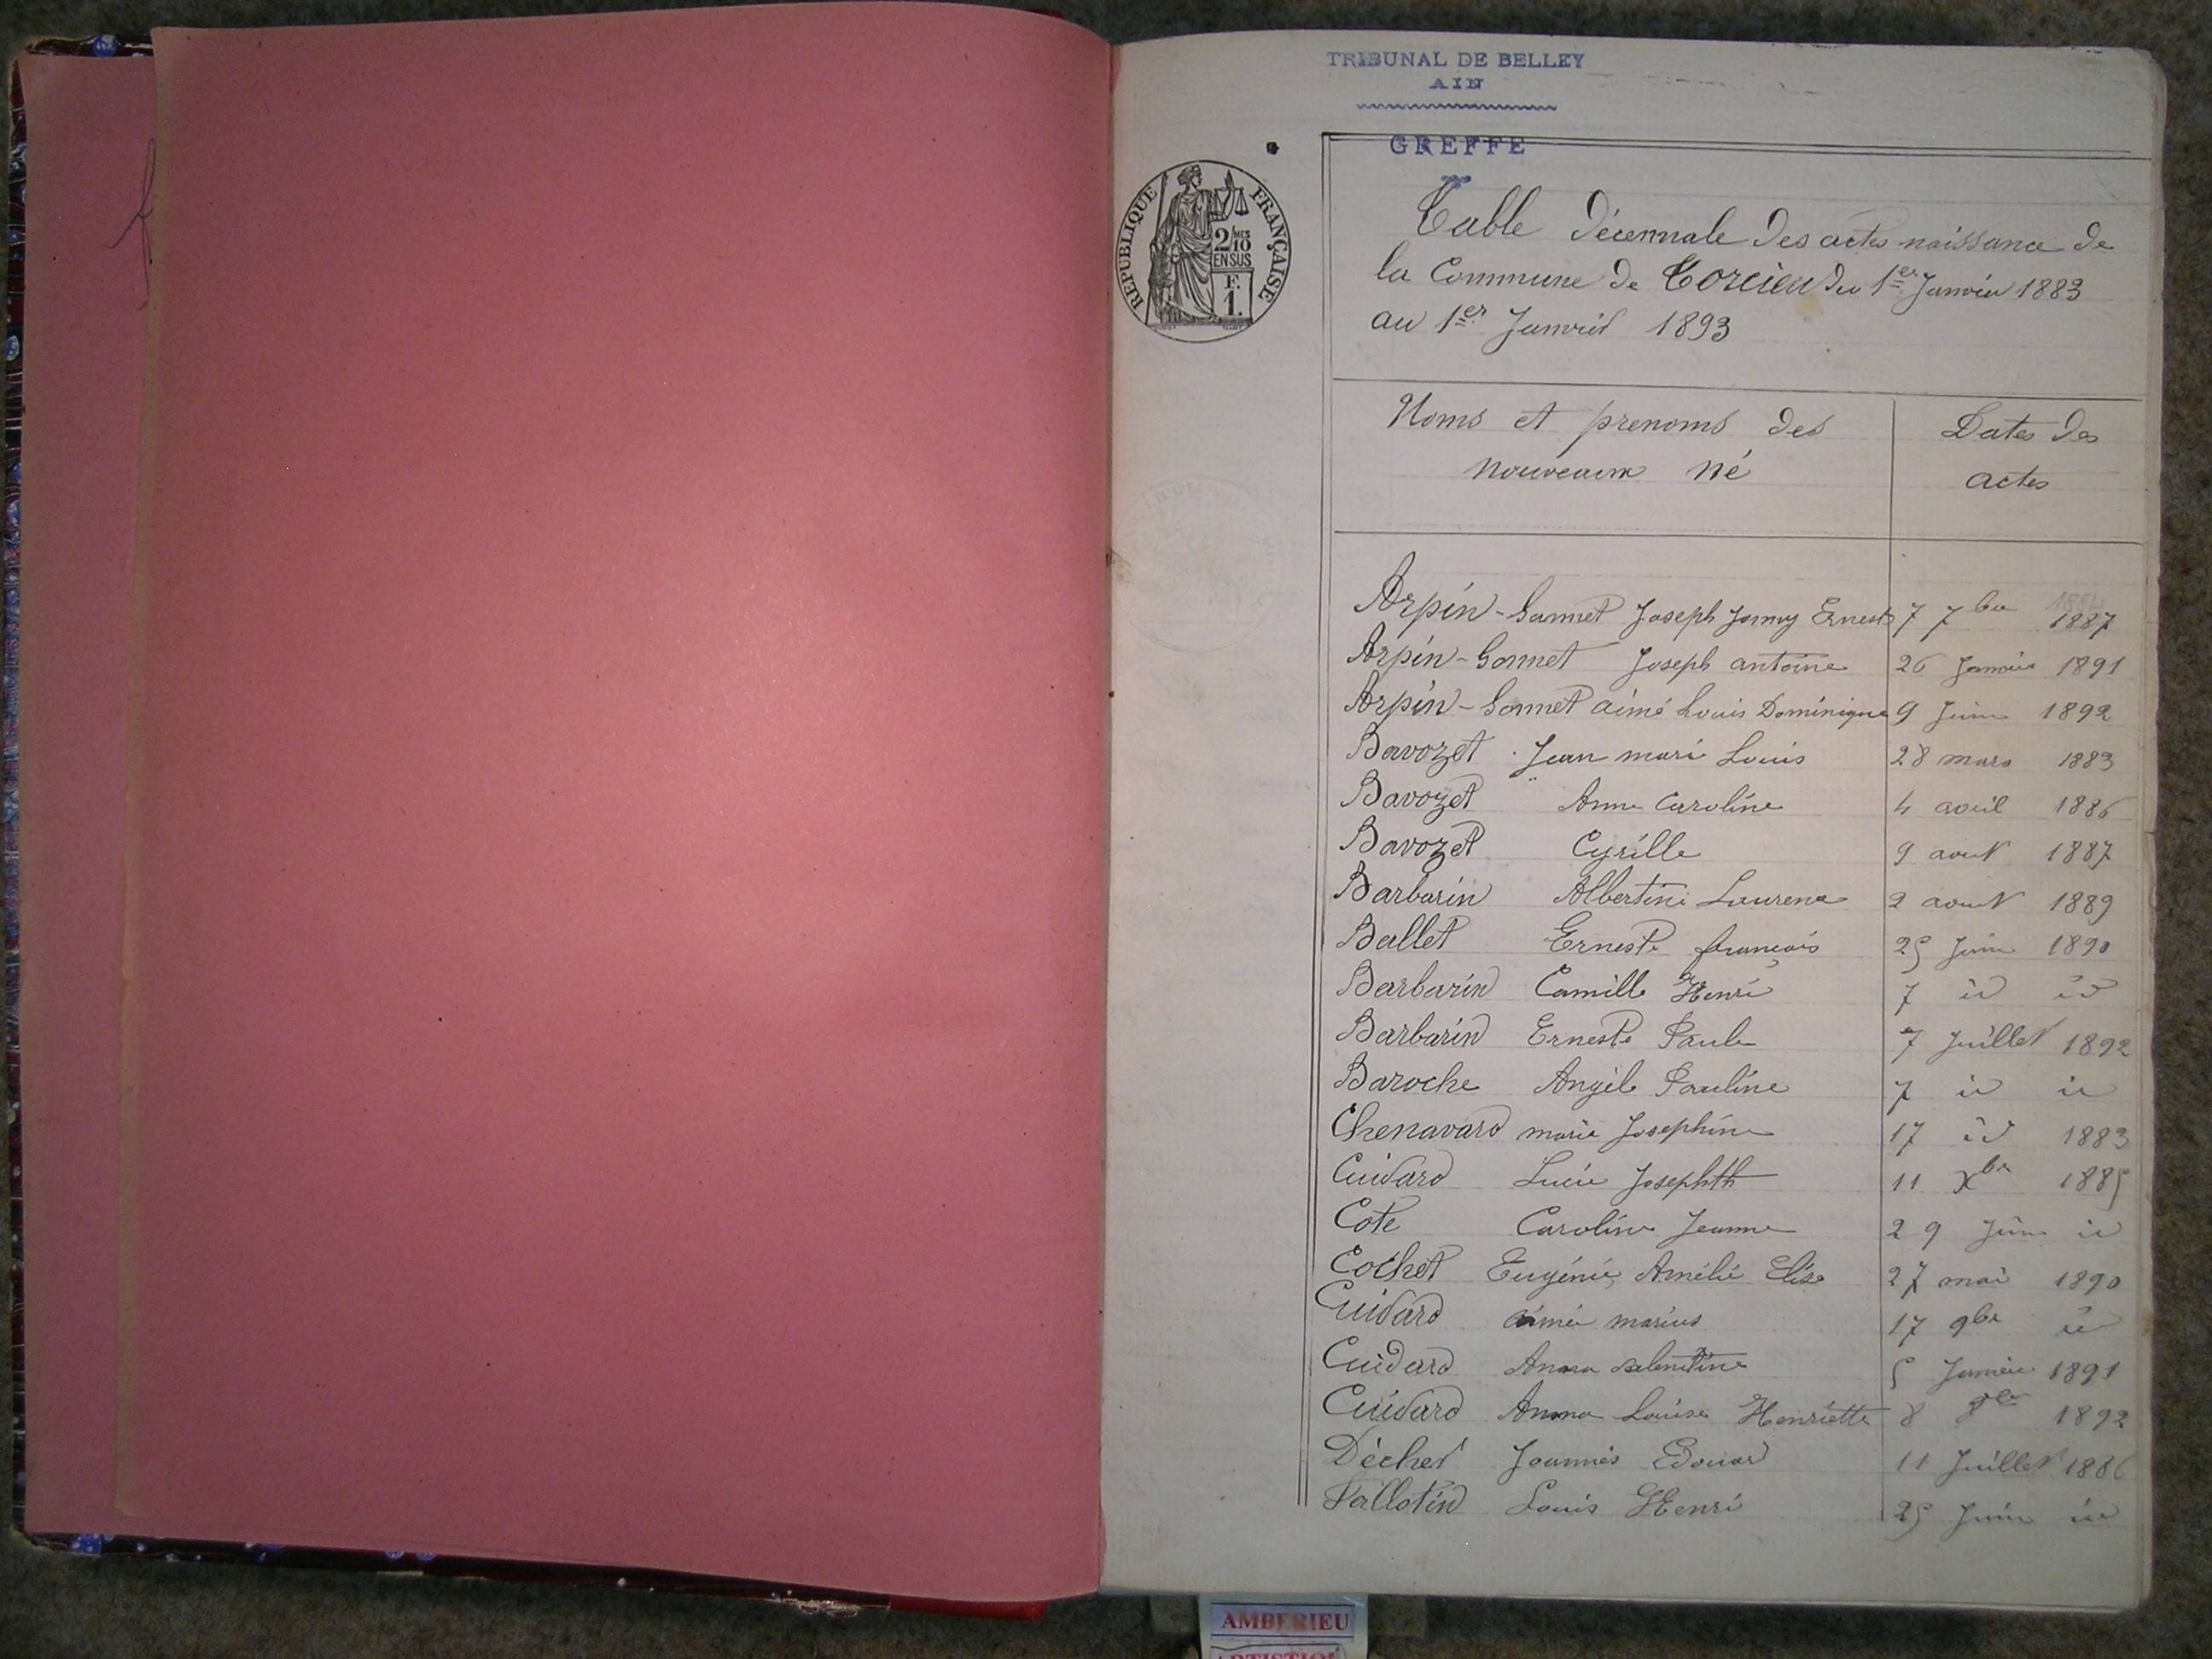 TRIBUNAL DE BELLEY
AIN
GREFFE
REPUBLIQUE FRANÇAISE
2/10 MES
EN SUS
F.
1.
Table décennale des actes naissance de
la Commune de Torcieu du 1er Janvier 1883
au 1er Janvier 1893
Noms et prenoms des
nouveaux né
Dates des
actes
Arpin-Gonnet Joseph Ernest 7 7bre 1887
Arpin-Gonnet Joseph antoine 26 Janvier 1891
Arpin-Gonnet aimé Louis Dominique 9 Juin 1892
Bavozet Jean mari Louis 28 mars 1883
Bavozet Anne Caroline 4 avril 1886
Bavozet Cyrille 9 aout 1887
Barbarin Albertine Laurence 2 aout 1889
Ballet Ernest françois 25 Juin 1890
Barbarin Camille Henri 7 id id
Barbarin Ernest Paul 7 Juillet 1892
Baroche Angèle Pauline 7 id id
Chenavard marie Josephine 17 id 1883
Cuidard Lucie Josephth 11 Xbre 1885
Cote Caroline Jeanne 29 Juin id
Cochet Eugénie Amélie Elise 27 mai 1890
Cuidard aimé marius 17 9bre id
Cuidard Anna 5 Janvier 1891
Cuidard Anna Louise Henriette 8 1892
Décher Joannès Edouard 11 Juillet 1886
Fallotin Louis Henri 25 Juin id
AMBERIEU